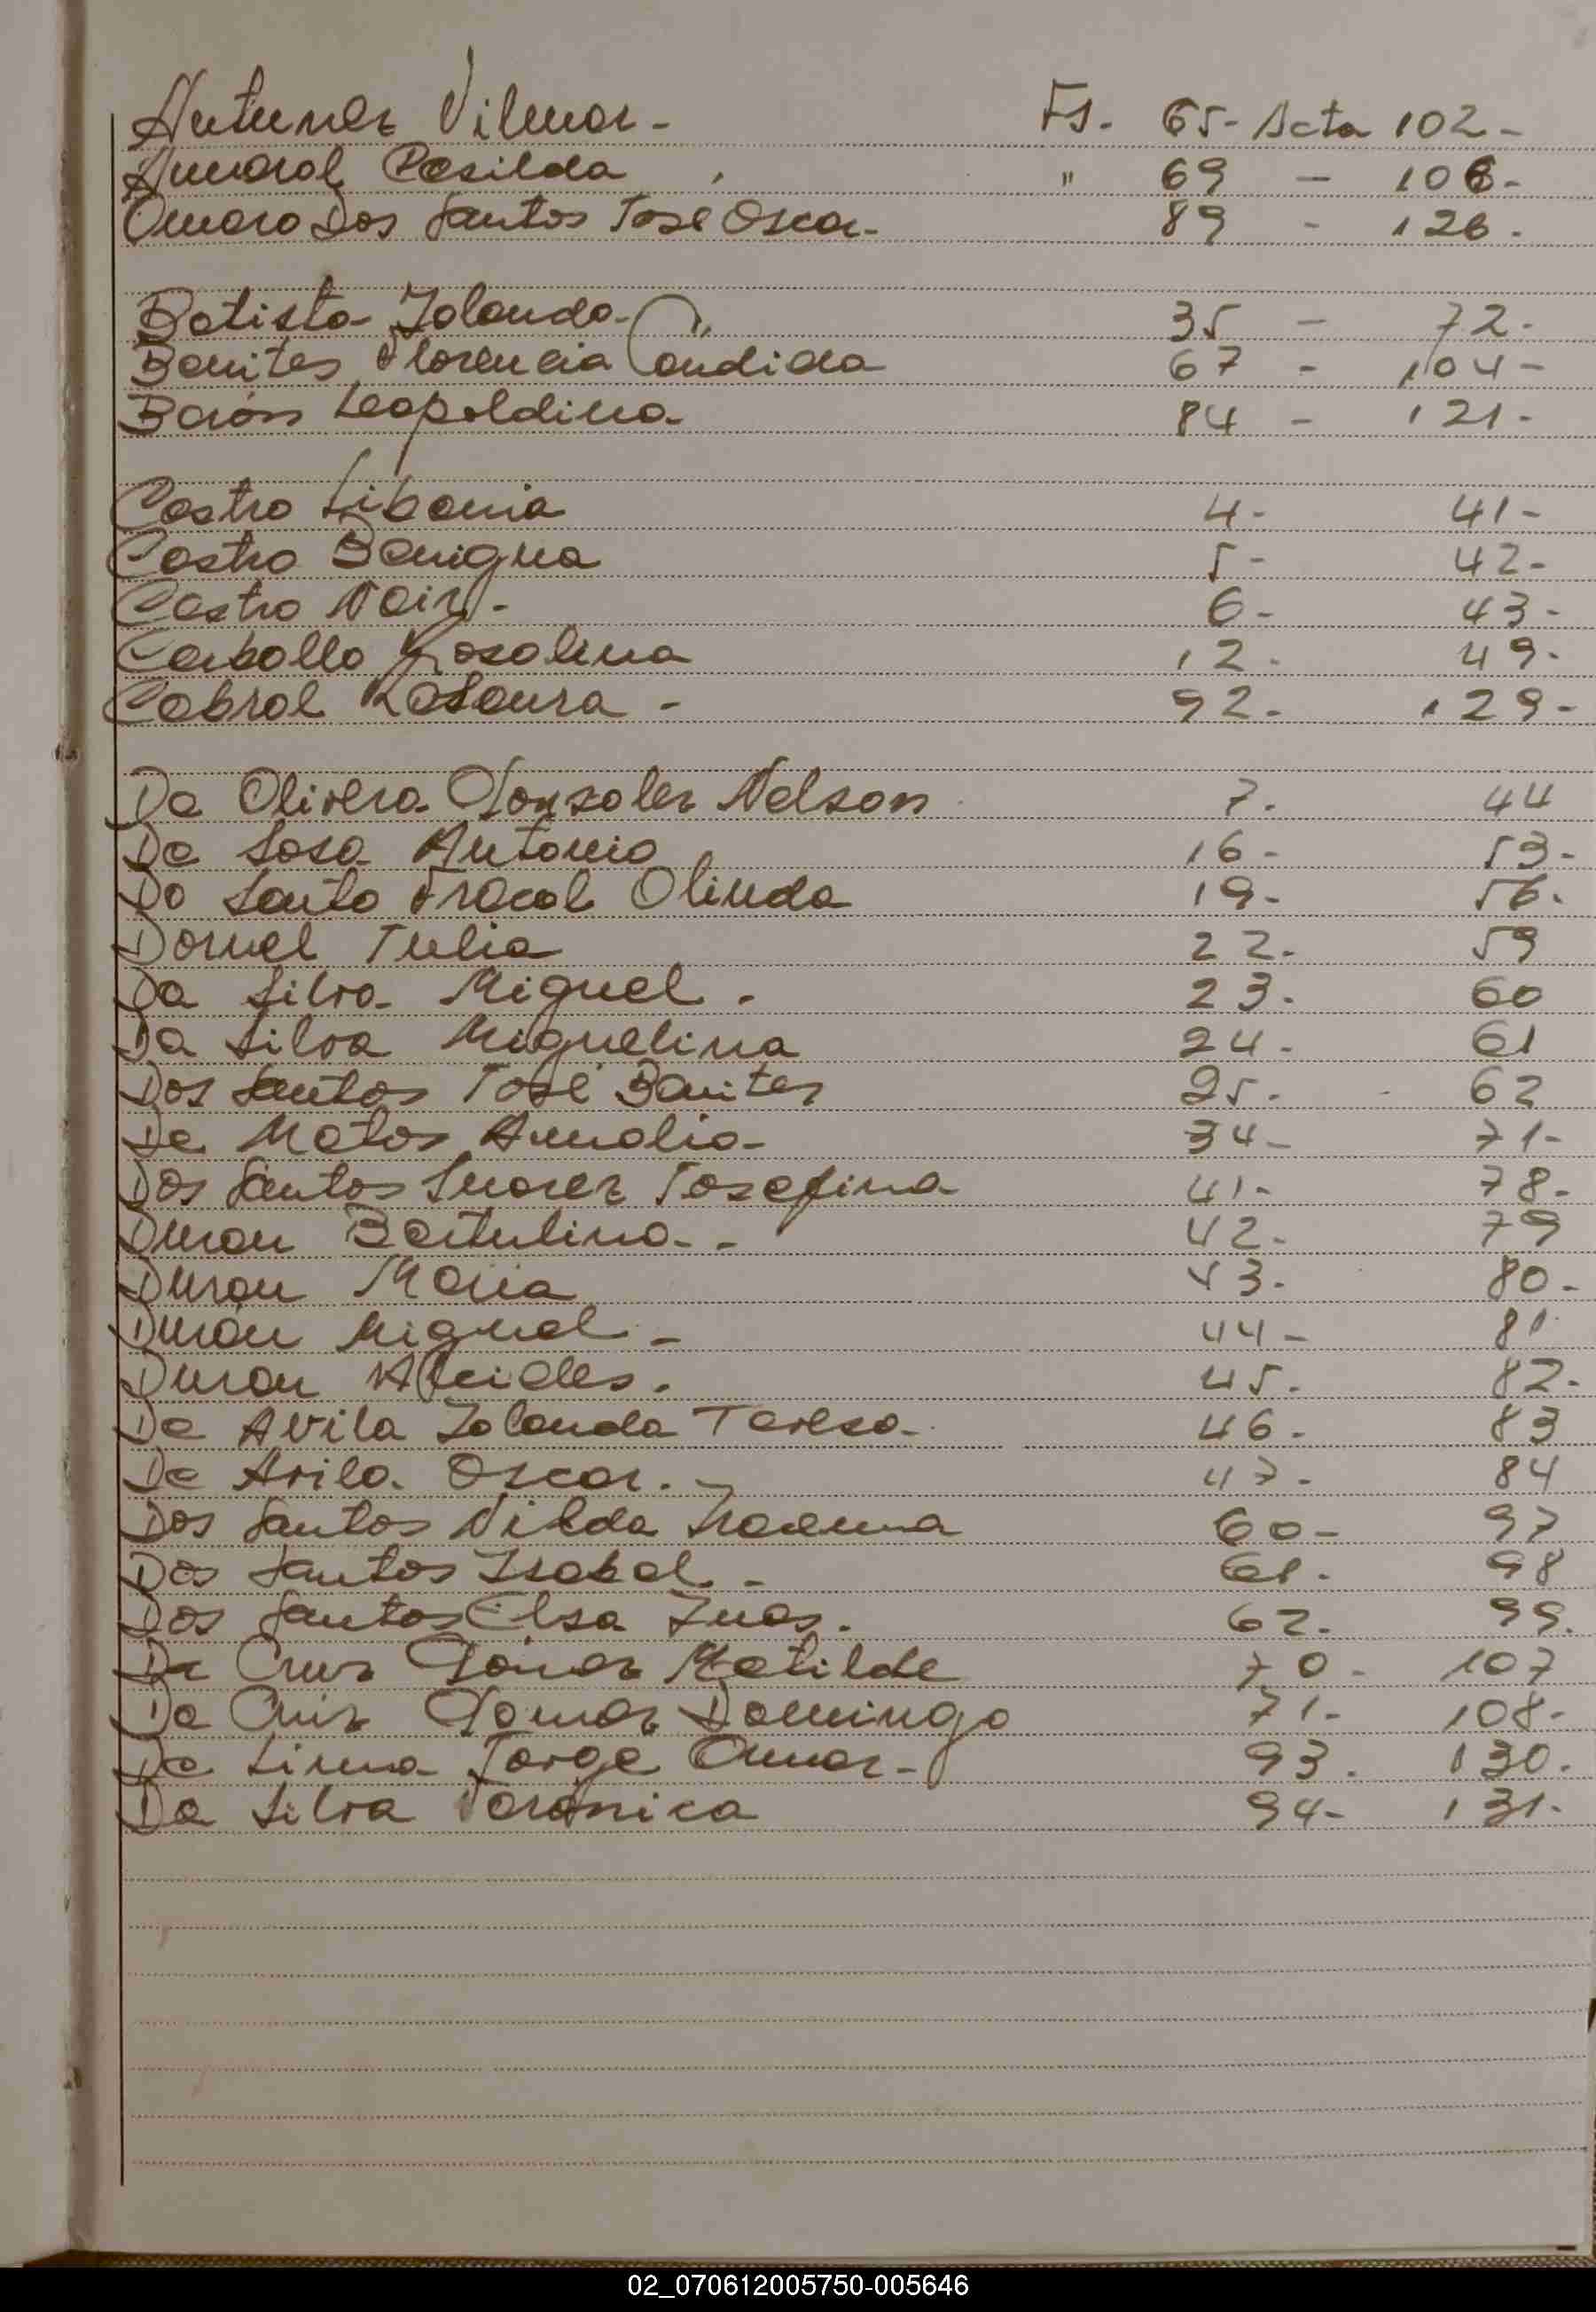 Antunez Vilmar - Fs. 65 - Acta 102 -
Amaral Casilda " 69 - 106 -
Amaro Dos Santos José Oscar - 89 - 126 -
Batista Iolanda - 35 - 72 -
Benites Florencia Cándida 67 - 104 -
Barón Leopoldina 84 - 121 -
Castro Libania 4 - 41 -
Castro Benigna 5 - 42 -
Castro Nair - 6 - 43 -
Carballo Rosalina 12 - 49 -
Cabral - 92 - 129 -
De Olivera Gonzalez Nelson 7 - 44
De Sosa Antonio 16 - 53 -
Do Santo Olinda 19 - 56 -
Dornel Julia 22 - 59
Da Silva Miguel - 23 - 60
Da Silva Miguelina 24 - 61
Dos Santos José Benitez 25 - 62
De Matos Amalia - 34 - 71 -
Dos Santos Suarez Josefina 41 - 78 -
Duran Bertulina - - 42 - 79
Duran Maria 43 - 80 -
Durán Miguel - 44 - 81
Duran Alcides - 45 - 82 -
De Avila Iolanda Teresa - 46 - 83
De Avila Oscar - 47 - 84
Dos Santos Nilda 60 - 97
Dos Santos Isabel - 61 - 98
Dos Santos Elsa Inés - 62 - 99 -
Da Cruz Gómez Matilde 70 - 107
Da Cruz Gomez Domingo 71 - 108 -
De Lima Jorge Omar - 93 - 130 -
Da Silva Veronica 94 - 131 -
02_070612005750-005646